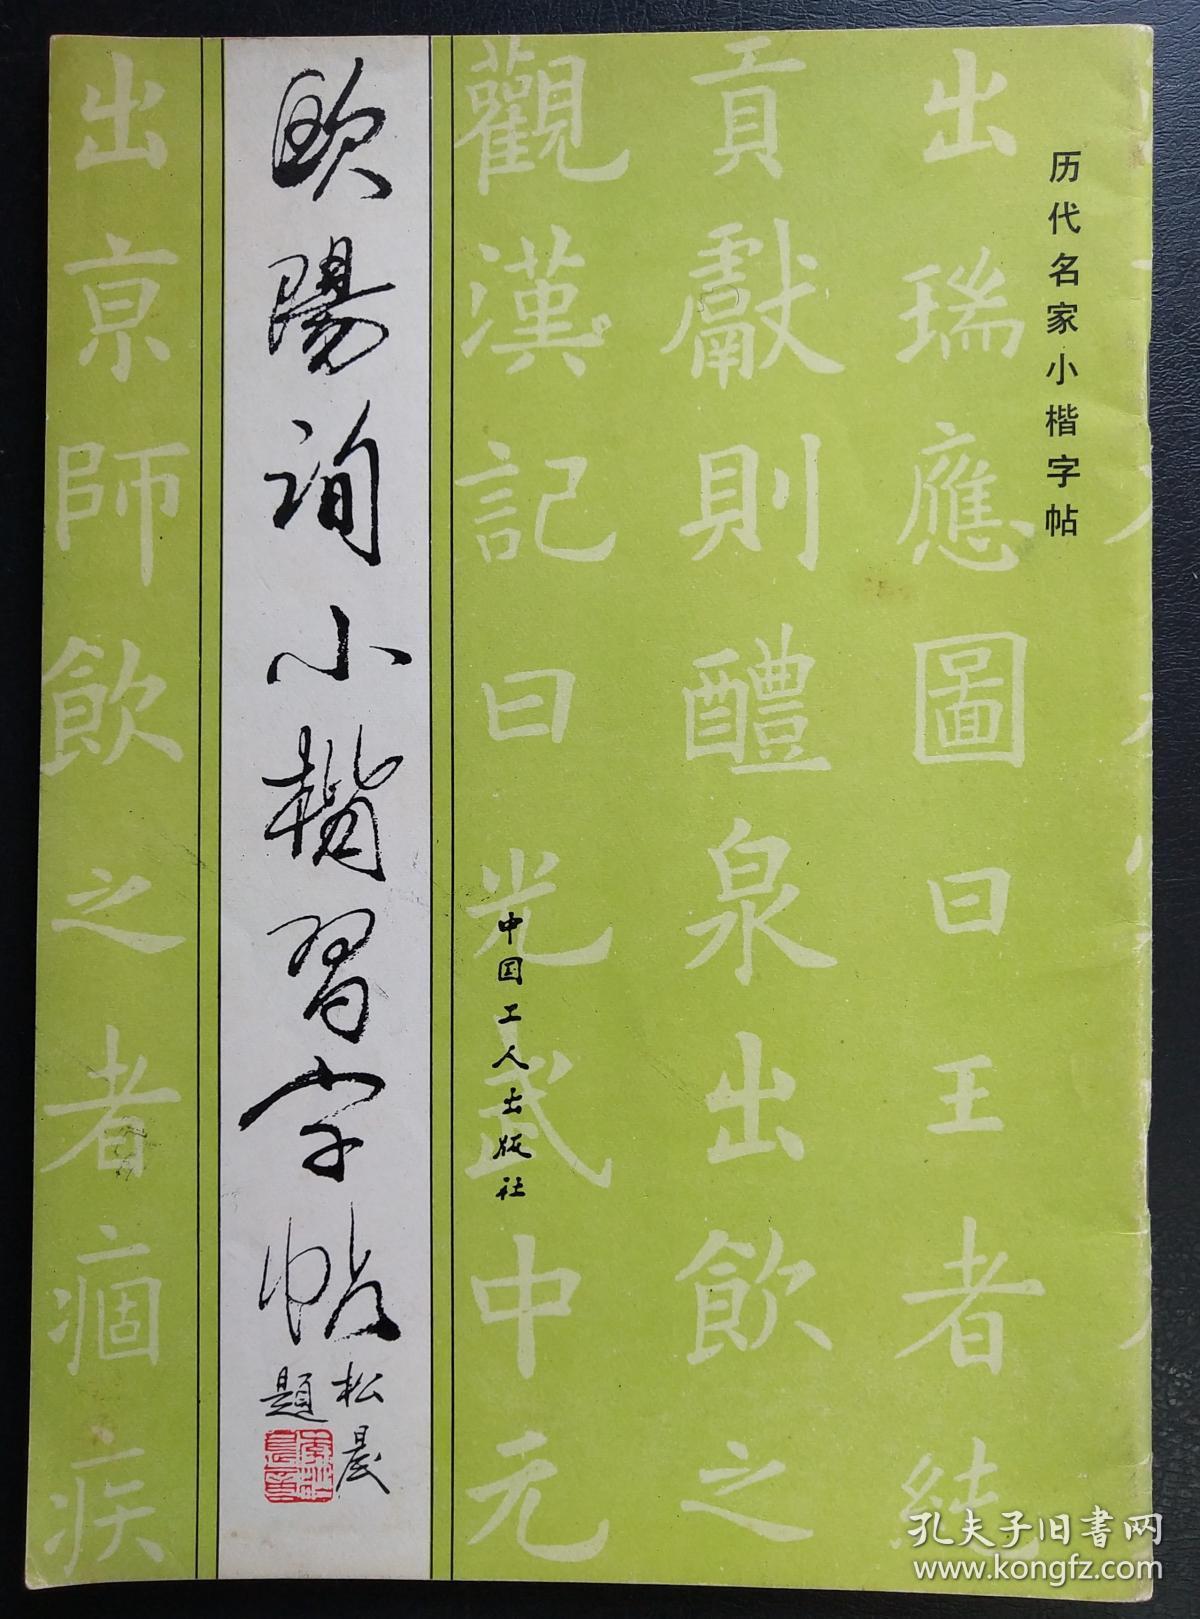 历代名家小楷字帖
出瑞應圖曰王者純
貢獻則醴泉出飲之
觀漢記曰光武中元
中国工人出版社
欧陽询小楷習字帖
松晨
題
出京師飲之者痼疾
孔夫子旧书网
www.kongfz.com